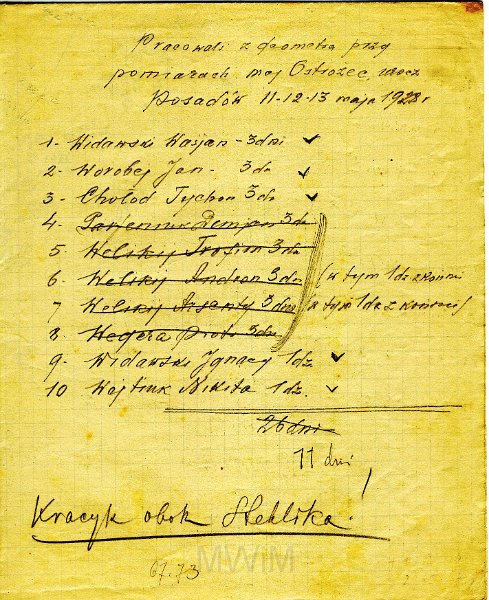 Pracowali z geometrą przy
pomiarach maj Ostrożec, urocz
Posadów 11-12-13 maja 1928 r
1- Widawski Wasjan - 3 dni ✓
2- Worobej Jan - 3 dn ✓
3- Chołod Tychon 3 dn ✓
4- Demjan 3 dn
5 Welskij Trofim 3 dn
6 - Welskij Andron 3 dni (w tym 1 dz z końmi
7 - Welskij Arsenty 3 dni (w tym 1 dz z końmi)
8 Wegera Piotr 3 dni
9- Widawski Jgnacy 1 dz. ✓
10 Wojtiuk Nikita 1 dz. ✓
26 dni
11 dni
Kracyk obok Steblika!
MWiM
67.73